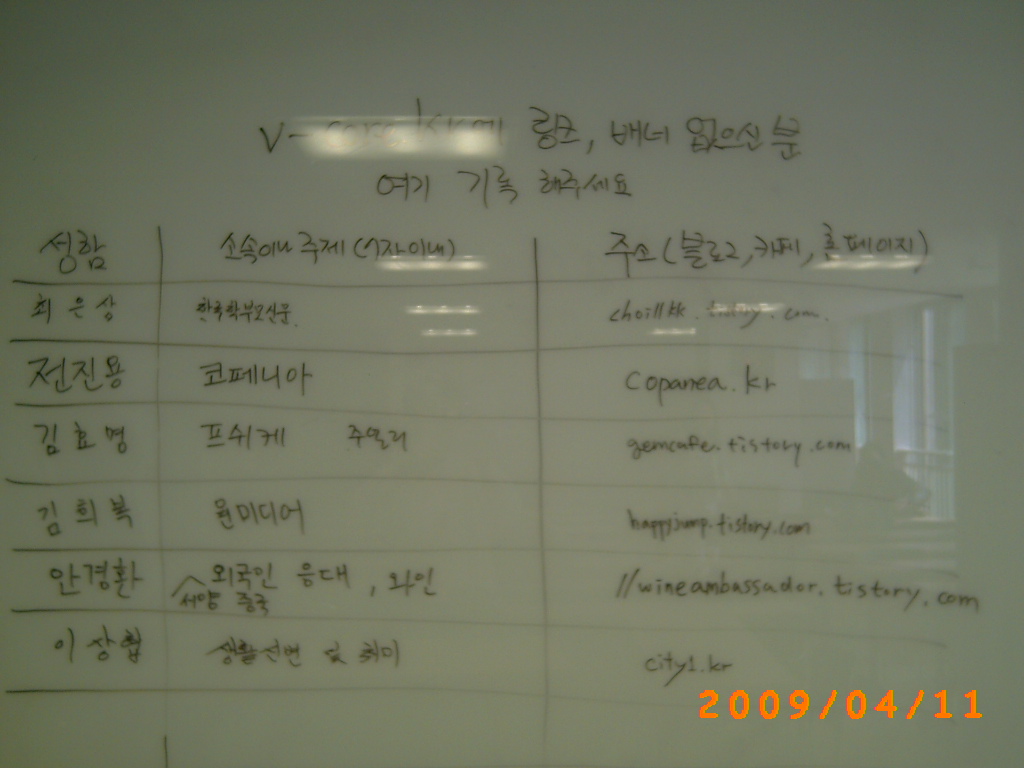 링크, 배너 없으신 분
여기 기록 해주세요
성함 소속이나 주제 (7자이내) 주소 (블로그, 카페, 홈페이지)
최은상 한국학부모신문.
전진용 코페니아 copanea.kr
김효명 프쉬케 주얼리 gemcafe.tistory.com
김희복 윤미디어 happyjump.tistory.com
안경환 서양 중국 외국인 응대, 와인 //wineambassador.tistory.com
이상협 및 취미 city1.kr
2009/04/11